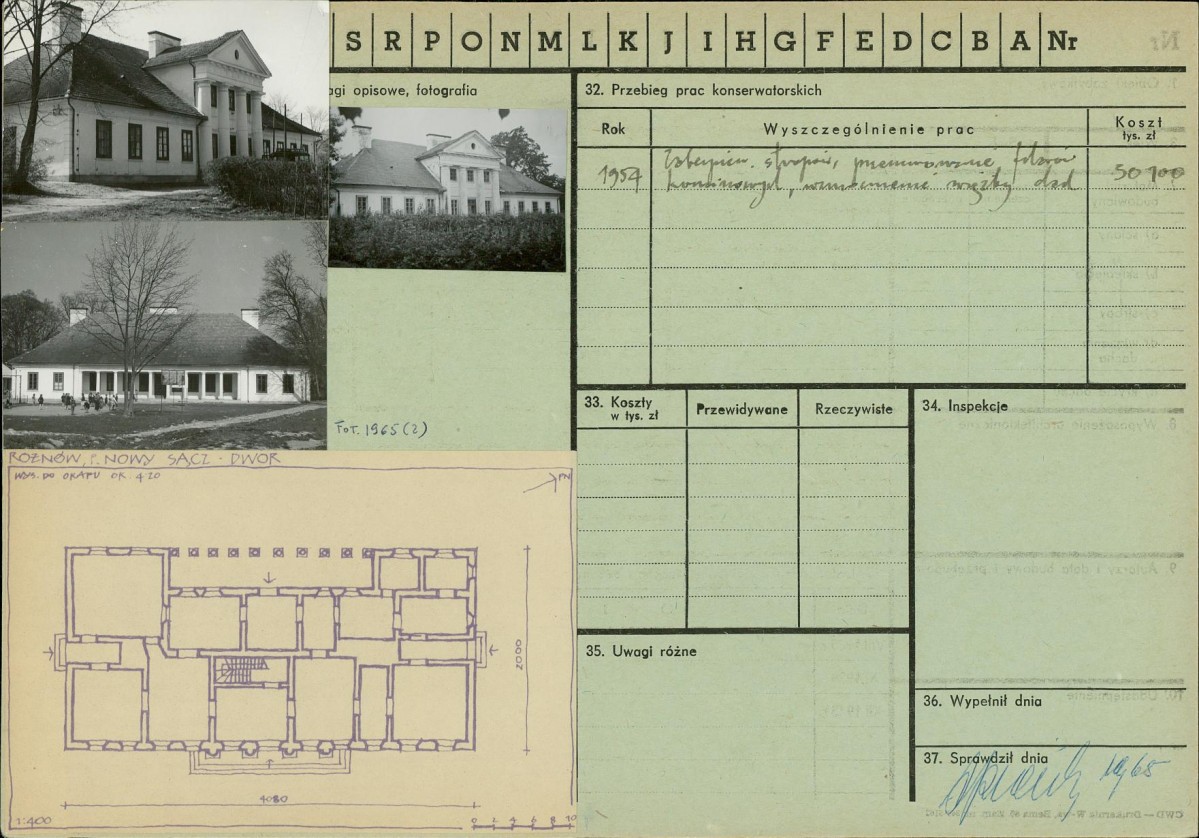 S R P O N M L K J I H G F E D C B A Nr
gi opisowe, fotografia
32. Przebieg prac konserwatorskich
Rok
Wyszczególnienie prac
Koszt
tys. zł
1954 Zabezpiecz. stropów, przemurowanie
kominowych, wzmocnienie więźby dach 50 100
Fot. 1965 (2)
33. Koszty
w tys. zł
Przewidywane
Rzeczywiste
34. Inspekcje
35. Uwagi różne
36. Wypełnił dnia
37. Sprawdził dnia
1965
ROŻNÓW, P. NOWY SĄCZ - DWÓR
WYS. DO OKAPU OK 420
PN
2000
4080
1:400
0 2 4 6 8 10